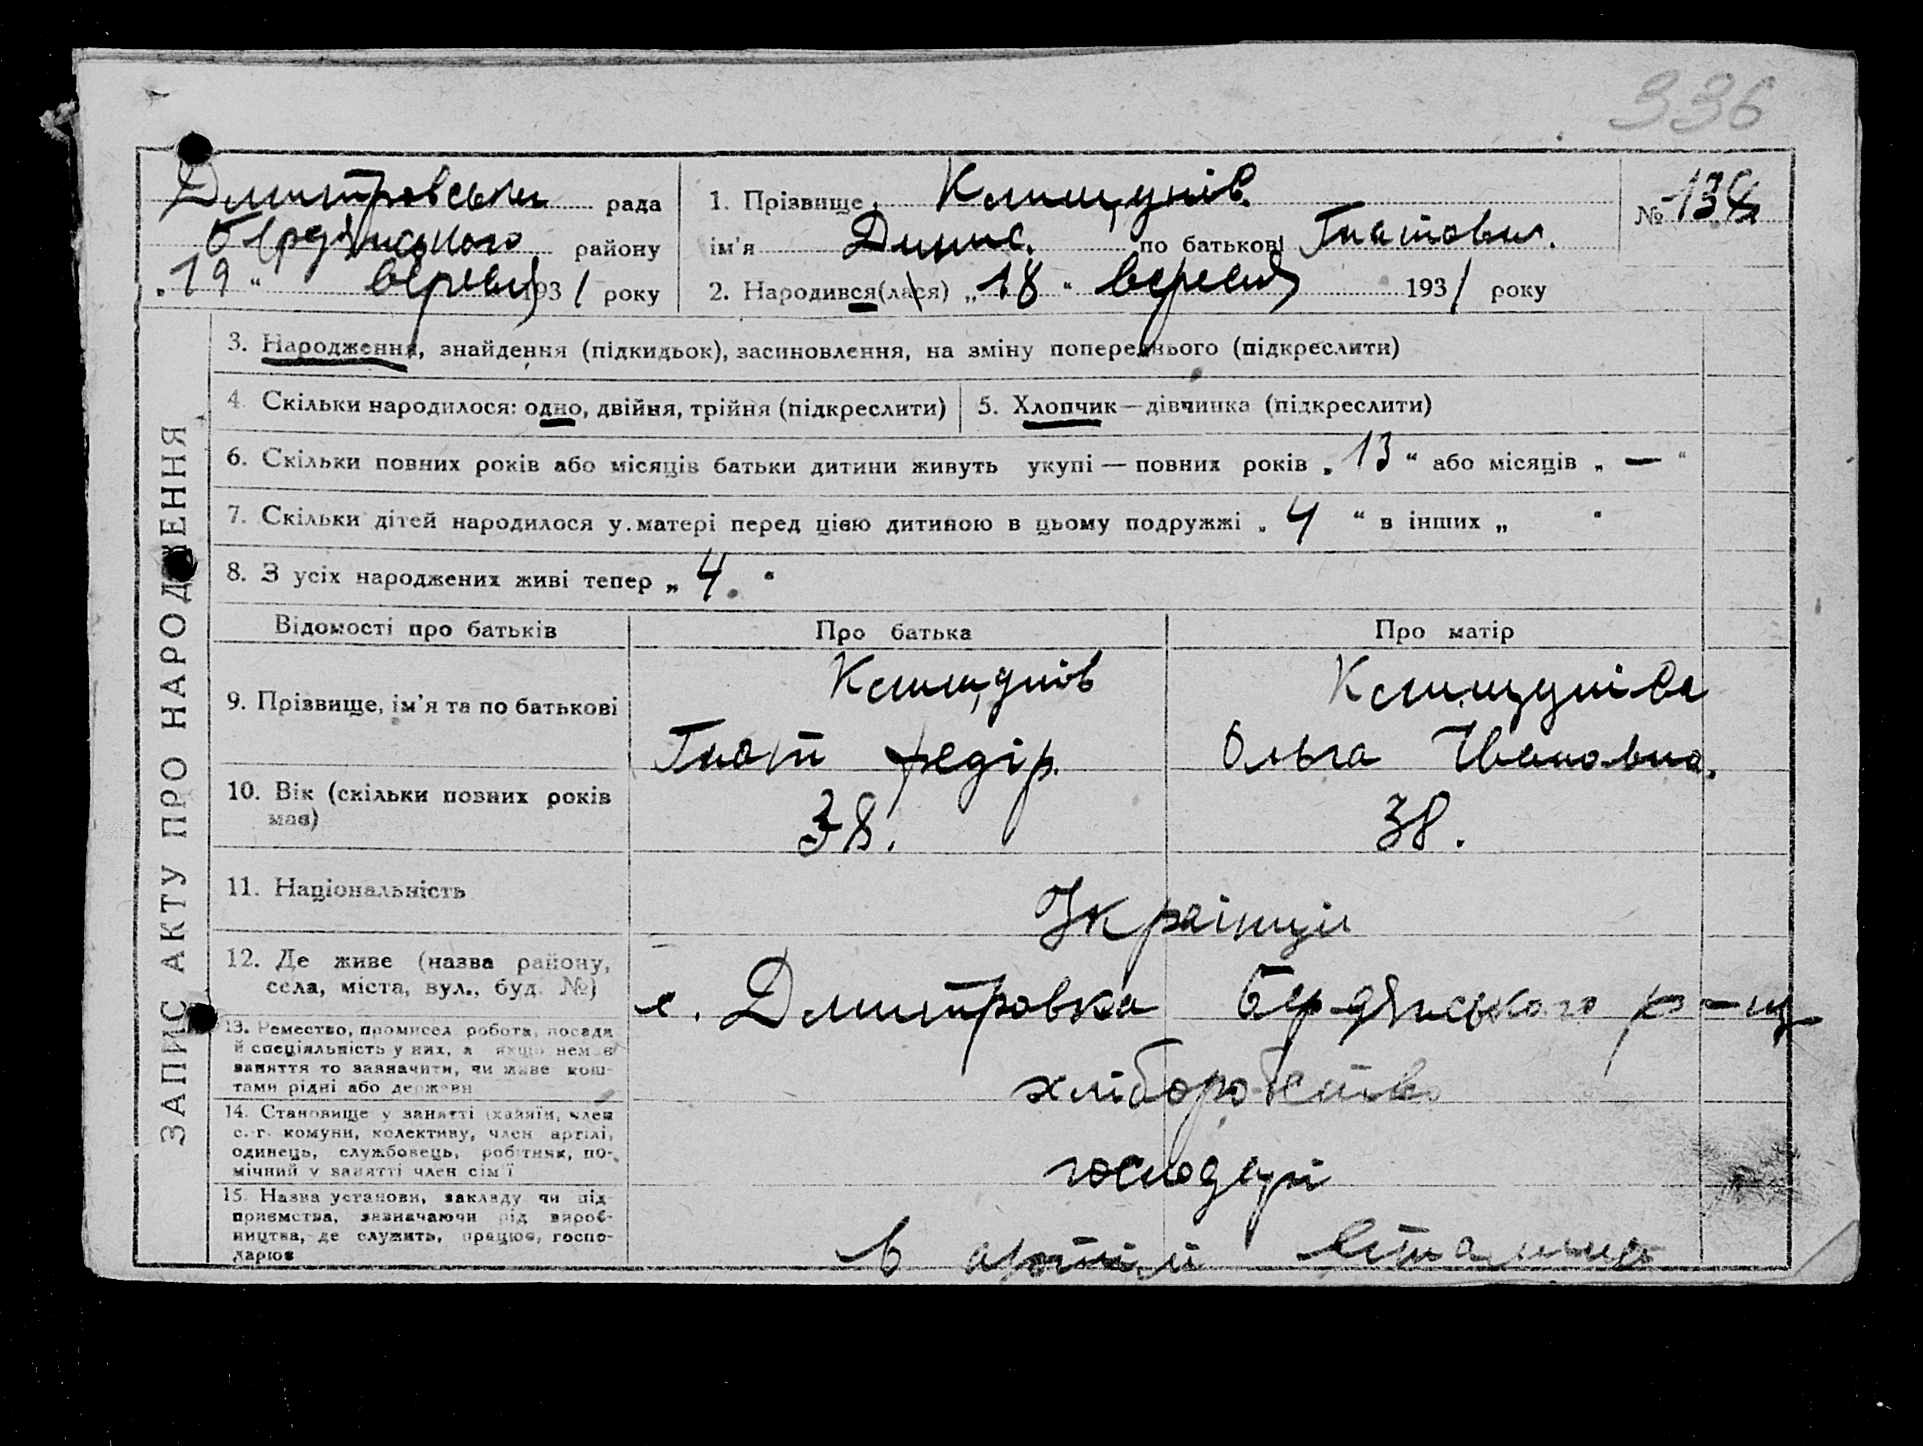 336
Дмитровська рада
Бердянського району
„19“ вересня 1931 року
1. Прізвище Клищунів.
ім'я Динис. по батькові Гнатович.
2. Народився(лася) „18“ вересня 1931 року
№ 134
ЗАПИС АКТУ ПРО НАРОДЖЕННЯ
3. Народження, знайдення (підкидьок), засиновлення, на зміну попереднього (підкреслити)
4. Скільки народилося: одно, двійня, трійня (підкреслити)
5. Хлопчик—дівчинка (підкреслити)
6. Скільки повних років або місяців батьки дитини живуть укупі — повних років „13“ або місяців „—“
7. Скільки дітей народилося у матері перед цією дитиною в цьому подружжі „4“ в інших „ “
8. З усіх народжених живі тепер „4.“
Відомості про батьків
Про батька
Про матір
9. Прізвище, ім'я та по батькові
Клищунів
Гнат Федір.
Клищунівa
Ольга Ивановна.
10. Вік (скільки повних років
має)
38.
38.
11. Національність
Українці
12. Де живе (назва району,
села, міста, вул., буд. №)
с. Дмитровка Бердянського р-ну
13. Ремество, промисел робота, посада
й спеціяльність у них, а якщо немає
заняття то зазначити, чи живе кош-
тами рідні або держави
хліборобство
14. Становище у занятті (хазяїн, член
с.-г. комуни, колективу, член артілі,
одинець, службовець, робітник, по-
мічний у занятті член сім'ї
господарі
15. Назва установи, закладу чи під-
приємства, зазначаючи рід вироб-
ництва, де служить, працює, госпо-
дарює
в артілі